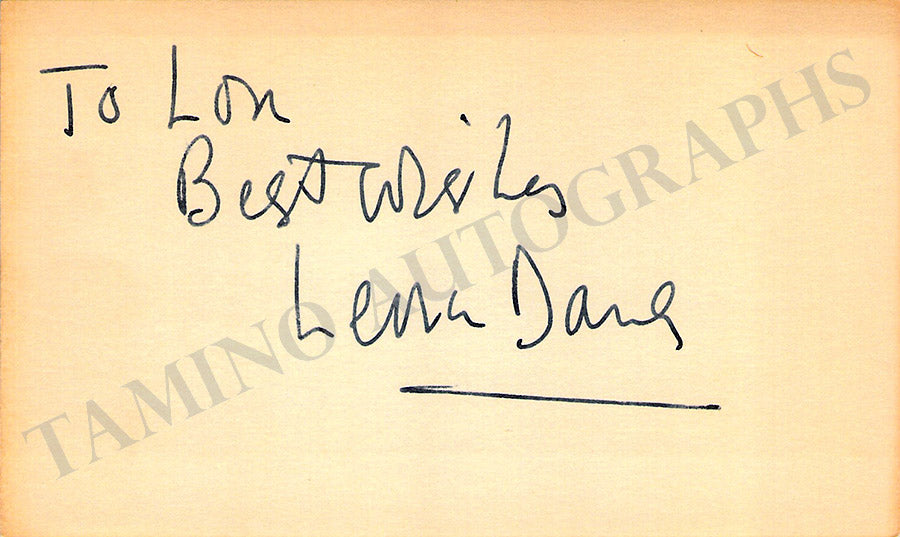 To Lon
Best Wishes
Leora Dana
TAMINO AUTOGRAPHS